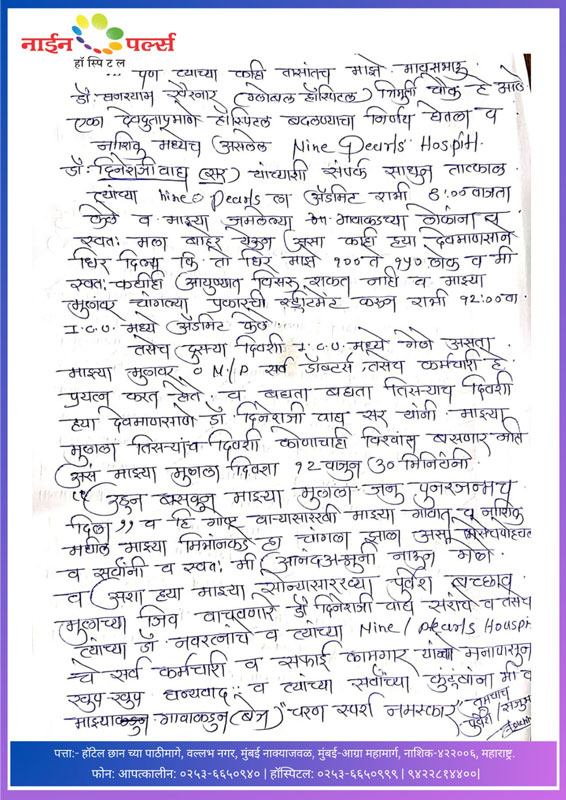 नाईन पर्ल्स
हॉस्पिटल
... पण त्याच्या काही तासांतच माझे मावसभाऊ
डॉ. घनश्याम खैरनार (ग्लोबल हॉस्पिटल) त्रिमुर्ती चौक हे आले
एका देवदुताप्रमाणे हॉस्पिटल बदलण्याचा निर्णय घेतला व
नाशिक मध्येच असलेल Nine Pearls Hospitl.
डॉ. दिनेशजी वाघ (सर) यांच्याशी संपर्क साधुन तात्काळ
त्यांच्या nine pearls ला अ‍ॅडमिट रात्री 8:00 वाजता
केले व माझ्या जमलेल्या गावाकडच्या लोकांना व
स्वतः मला बाहेर येऊन असा काही ह्या देवमाणसाने
धिर दिला कि तो धिर माझे १०० ते १५० लोक व मी
स्वतः कधीही आयुष्यात विसरू शकत नाही व माझ्या
मुलांवर चांगल्या प्रकारची ट्रीटमेंट करून रात्री १२:०० वा.
I.C.U. मध्ये अ‍ॅडमिट केले.
तसेच दुसऱ्या दिवशी I.C.U. मध्ये गेलो असता
माझ्या मुलावर N/P सर्व डॉक्टर्स तसेच कर्मचारी हे
प्रयत्न करत होते. व बघता बघता तिसऱ्याच दिवशी
ह्या देवमाणसाणे डॉ दिनेशजी वाघ सर यांनी माझ्या
मुलाला तिसऱ्याच दिवशी कोणाचाही विश्वास बसणार नाही
असं माझ्या मुलाला दिवसा १२ वाजुन ३० मिनिटांनी
"उठुन बसवुन माझ्या मुलाला जणु पुनरजन्मच
दिला" व हि गोष्ट वाऱ्यासारखी माझ्या गावात व नाशिक
मधील माझ्या मित्रांनकडे हा चांगला झाला असा मेसेज पोहचला
व सर्वांनी व स्वतः मी आनंदअश्रुनी नाहून गेलो
व अशा ह्या माझ्या सोन्यासारख्या पुर्वेश बच्छाव
मुलाच्या जिव वाचवणारे डॉ दिनेशजी वाघ सरांचे व तसेच
त्यांच्या डॉ नवरत्नाचे व त्यांच्या Nine / pearls Houspi
चे सर्व कर्मचारी व सफाई कामगार यांचे मनापासुन
खुप-खुप धन्यवाद. व त्यांच्या सर्वांच्या कुंटूबांना मी व
माझ्याकडुन गावाकडुन (बेज) "चरण स्पर्श नमस्कार"
तुमचाच
पत्ता:- हॉटेल छान च्या पाठीमागे, वल्लभ नगर, मुंबई नाक्याजवळ, मुंबई-आग्रा महामार्ग, नाशिक-४२२००६, महाराष्ट्र.
फोन: आपत्कालीन: ०२५३-६६५०९४० | हॉस्पिटल: ०२५३-६६५०९९९ | ९४२२८१४४००|